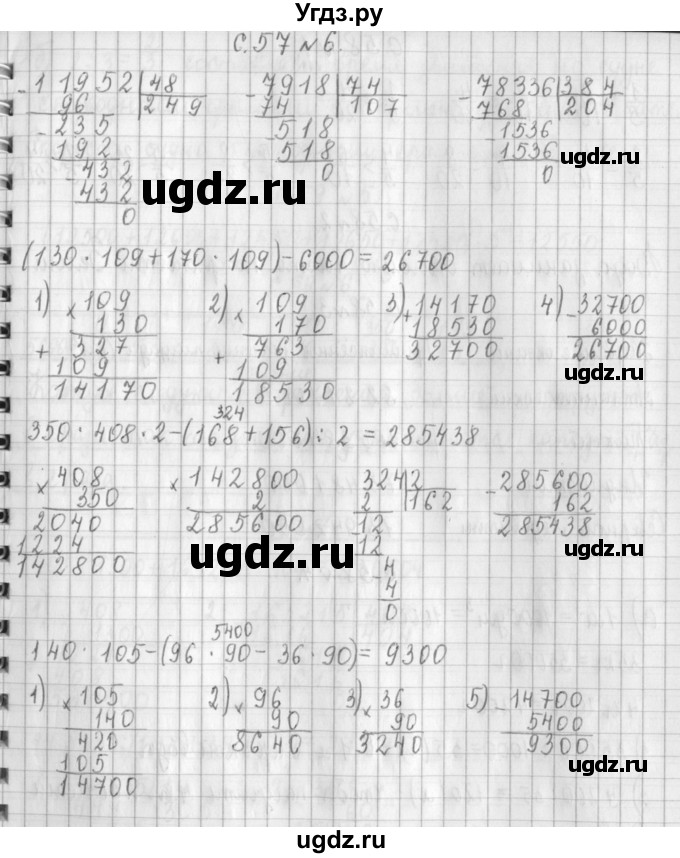 Угдз.ру
с. 57 № 6.
- 11952 | 48
96 | 249
- 235
192
- 432
432
0
- 7918 | 74
74 | 107
- 518
518
0
- 78336 | 384
768 | 204
- 1536
1536
0
ugdz.ru
ugdz.ru
(130 · 109 + 170 · 109) - 6000 = 26700
1) × 109
130
+ 327
109
14170
2) × 109
170
+ 763
109
18530
3) + 14170
18530
32700
4) - 32700
6000
26700
ugdz.ru
ugdz.ru
324
350 · 408 · 2 - (168 + 156) : 2 = 285438
× 408
350
2040
1224
142800
× 142800
2
285600
324 | 2
2 | 162
12
12
- 4
4
0
- 285600
162
285438
ugdz.ru
ugdz.ru
5400
140 · 105 - (96 · 90 - 36 · 90) = 9300
1) × 105
140
420
105
14700
2) × 96
90
8640
3) × 36
90
3240
5) - 14700
5400
9300
ugdz.ru
ugdz.ru
ugdz.ru